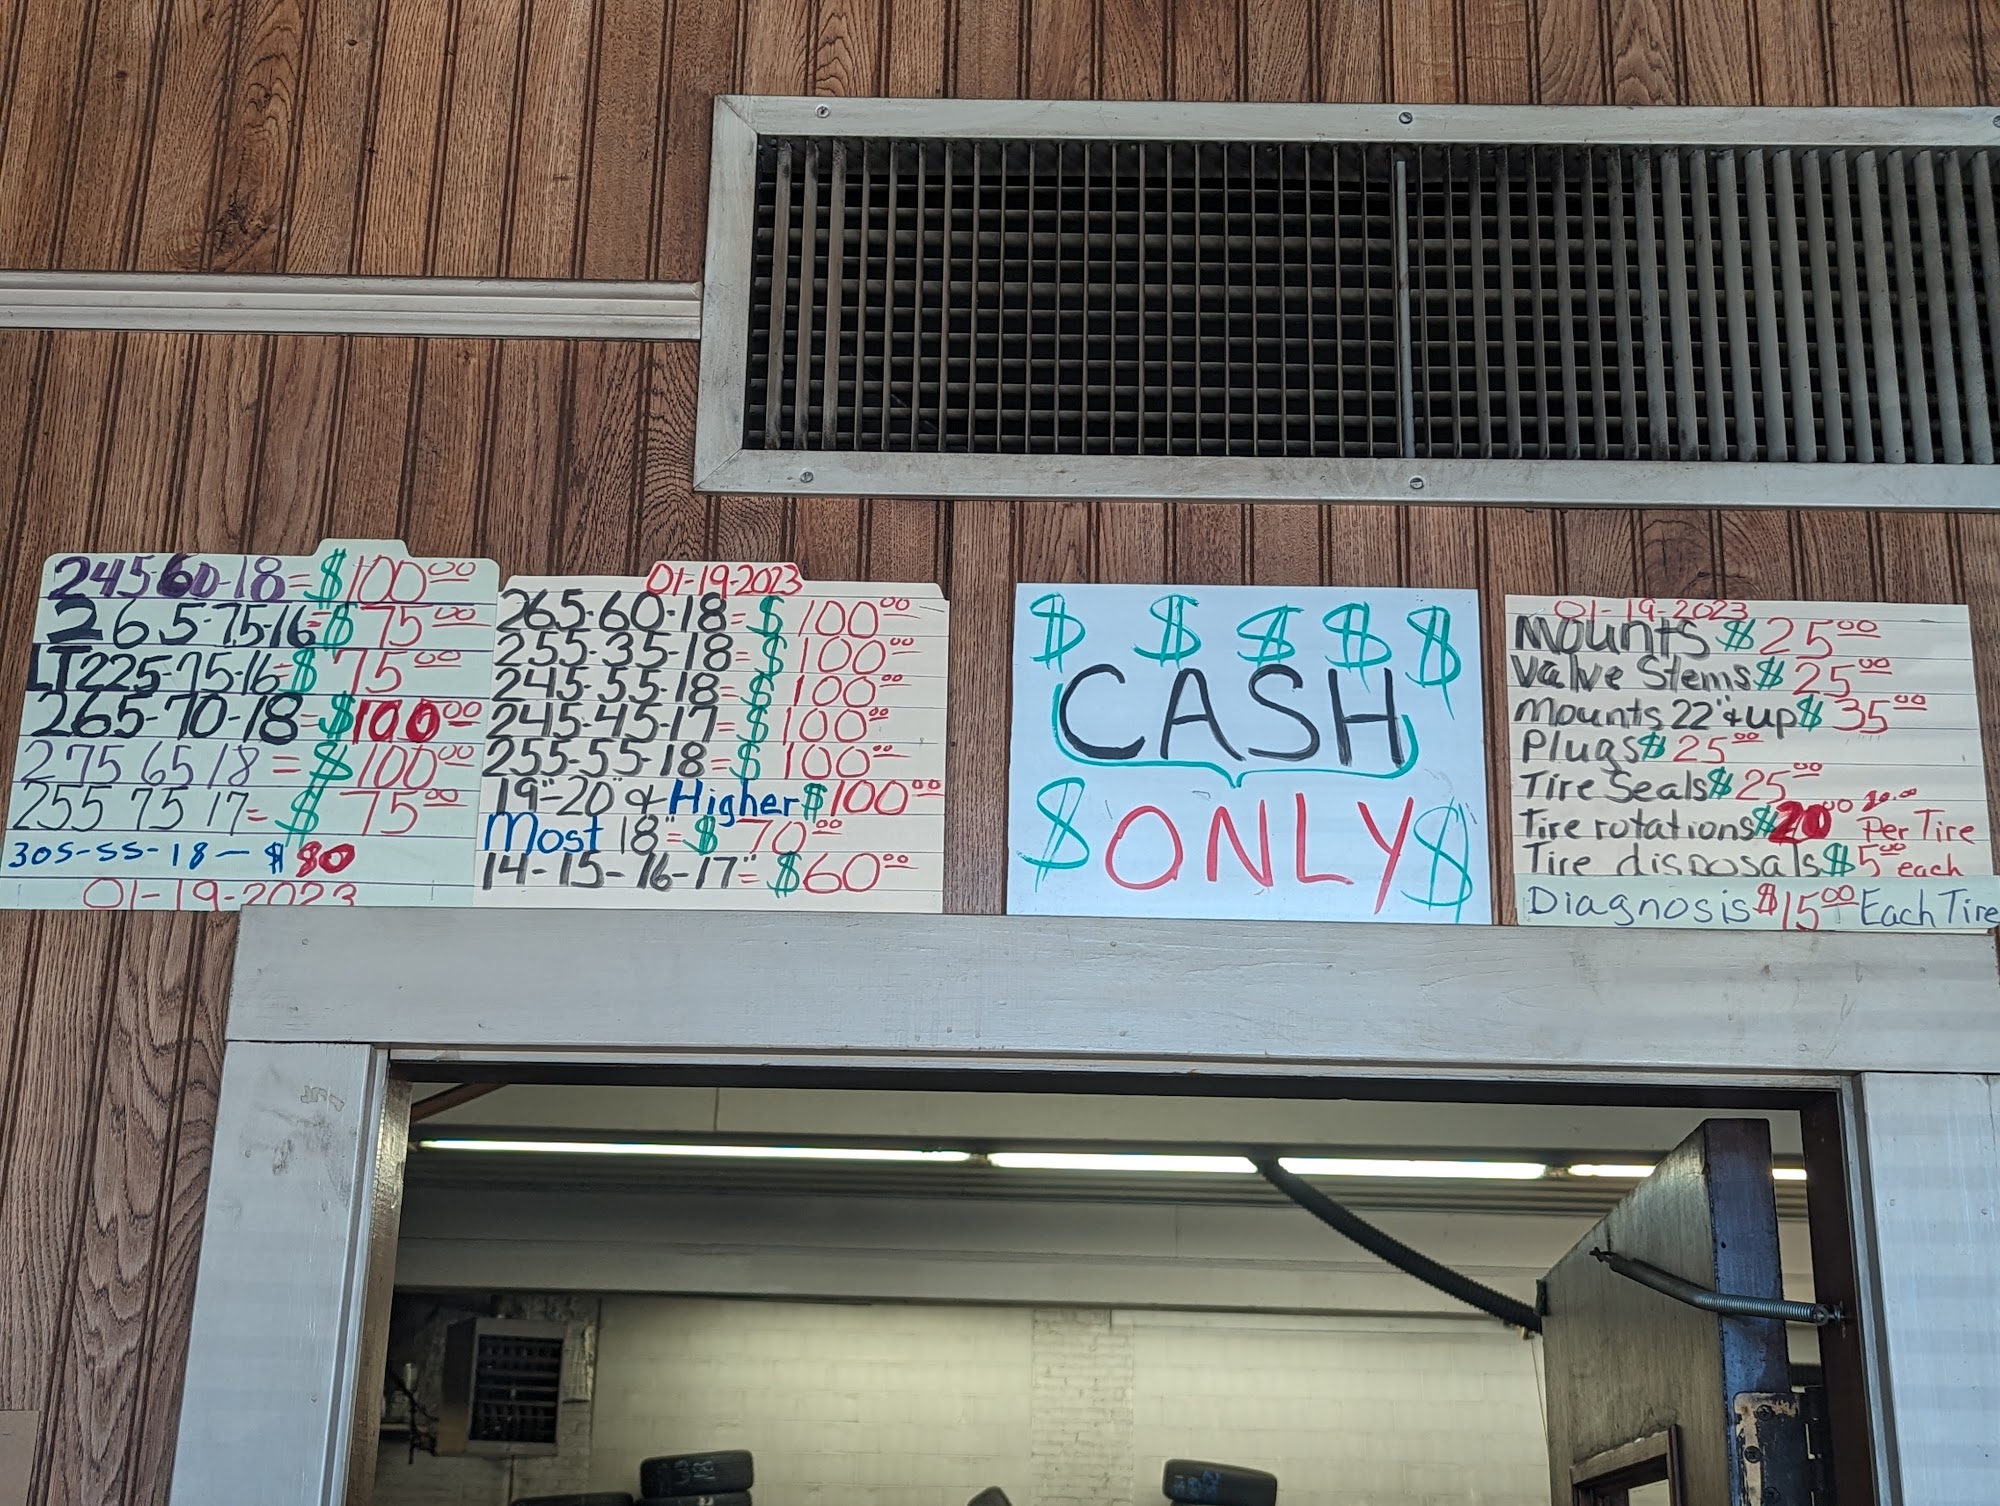 245 60-18=$100.00
265-75-16=$75.00
LT225-75-16=$75.00
265-70-18=$100.00
275 65 18=$100.00
255 75 17=$75.00
305-55-18-$80
01-19-2023
01-19-2023
265-60-18=$100.00
255-35-18=$100.00
245-55-18=$100.00
245-45-17=$100.00
255-55-18=$100.00
19"-20" & Higher $100.00
Most 18"=$70.00
14-15-16-17"=$60.00
$ $ $ $ $
CASH
$ ONLY $
01-19-2023
Mounts $25.00
Valve Stems $25.00
Mounts 22"&up $35.00
Plugs $25.00
Tire Seals $25.00
Tire rotations $20.00 Per Tire
Tire disposals $5.00 each
Diagnosis $15.00 Each Tire